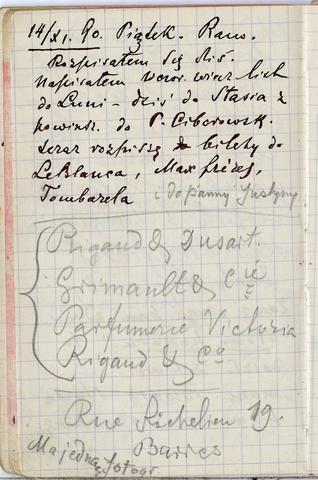 14/XI. 90. Piątek. Rano.
Rozpisałem się dziś.
Napisałem wczor. wiecz. lich
do Luni – dziś do Stasia z
powinsz. do P. Ciborowsk.
teraz rozpiszę bilety do
Leblanca, Max frères,
Tombarela i do panny Justyny
Rigaud & Dusart.
Grimault & Cié
Parfumerie Victoria
Rigaud & Co
Rue Richelieu 19.
Ma jedną fotogr. Barrès